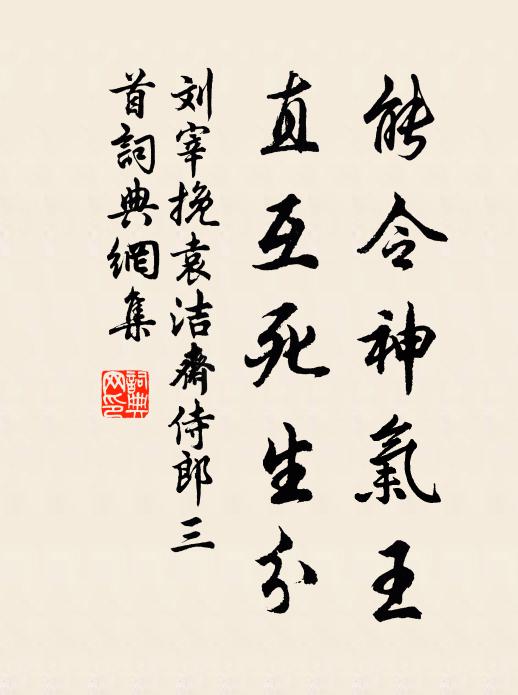 能令神氣王
直互死生分
刘宰挽袁洁齋侍郎三
首詞典網集
詞典网印